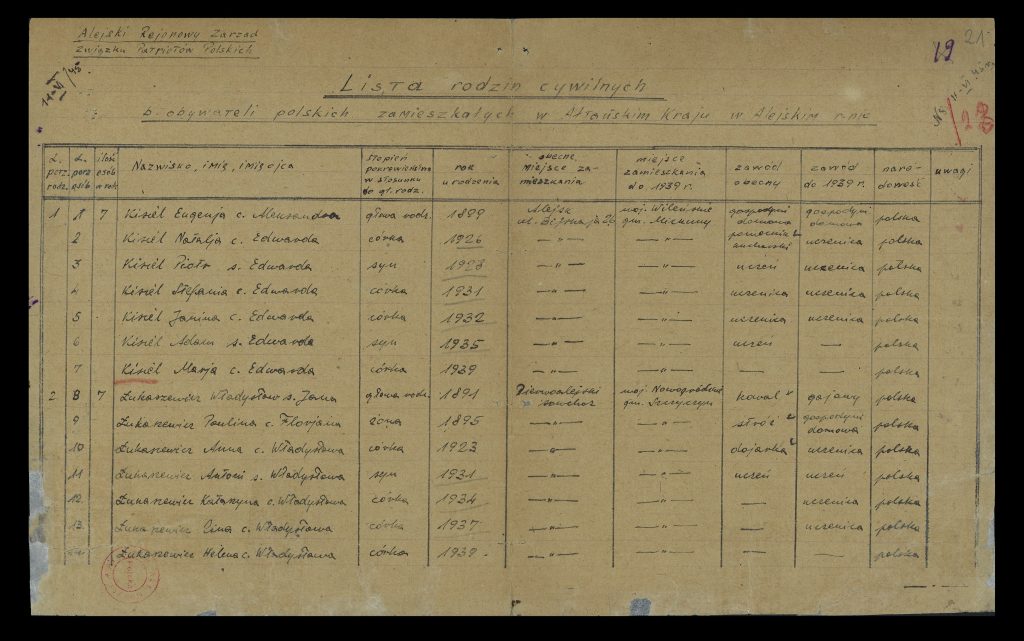 Alejski Rejonowy Zarząd
Związku Patriotów Polskich
19
21
Lista rodzin cywilnych
b. obywateli polskich zamieszkałych w Ałtańskim Kraju w Alejskim r-nie
L. porz. rodz. L. porz. osób ilość osób w rodz. Nazwisko, imię, imię ojca stopień pokrewieństwa w stosunku do gł. rodz. rok urodzenia obecne miejsce zamieszkania miejsce zamieszkania do 1939 r. zawód obecny zawód do 1939 r. narodowość uwagi
1 1 7 Kisiél Eugenja c. Aleksandra głowa rodz. 1899 Alejsk woj. Wileńskie gm. gospodyni domowa gospodyni domowa polska
2 Kisiél Natalja c. Edwarda córka 1926 —„— —„— uczenica polska
3 Kisiél Piotr s. Edwarda syn —„— —„— uczeń uczenica polska
4 Kisiél Stefania c. Edwarda córka 1931 —„— —„— uczenica uczenica polska
5 Kisiél Janina c. Edwarda córka 1932 —„— —„— uczenica uczenica polska
6 Kisiél Adam s. Edwarda syn 1935 —„— —„— uczeń — polska
7 Kisiél Marja c. Edwarda córka 1939 —„— —„— — — polska
2 8 7 Łukaszewicz Władysław s. Jana głowa rodz. 1891 woj. Nowogródzkie gm. kowal gajowy polska
9 Łukaszewicz Paulina c. Florjana żona 1895 —„— —„— stróż gospodyni domowa polska
10 Łukaszewicz Anna c. Władysława córka 1923 —„— —„— dojarka uczenica polska
11 Łukaszewicz Antoni s. Władysława syn 1931 —„— —„— uczeń uczeń polska
12 Łukaszewicz Katarzyna c. Władysława córka 1934 —„— —„— — uczenica polska
13 Łukaszewicz c. Władysława córka 1937 —„— —„— — uczenica polska
Łukaszewicz Helena c. Władysława córka 1939 —„— —„— — — polska